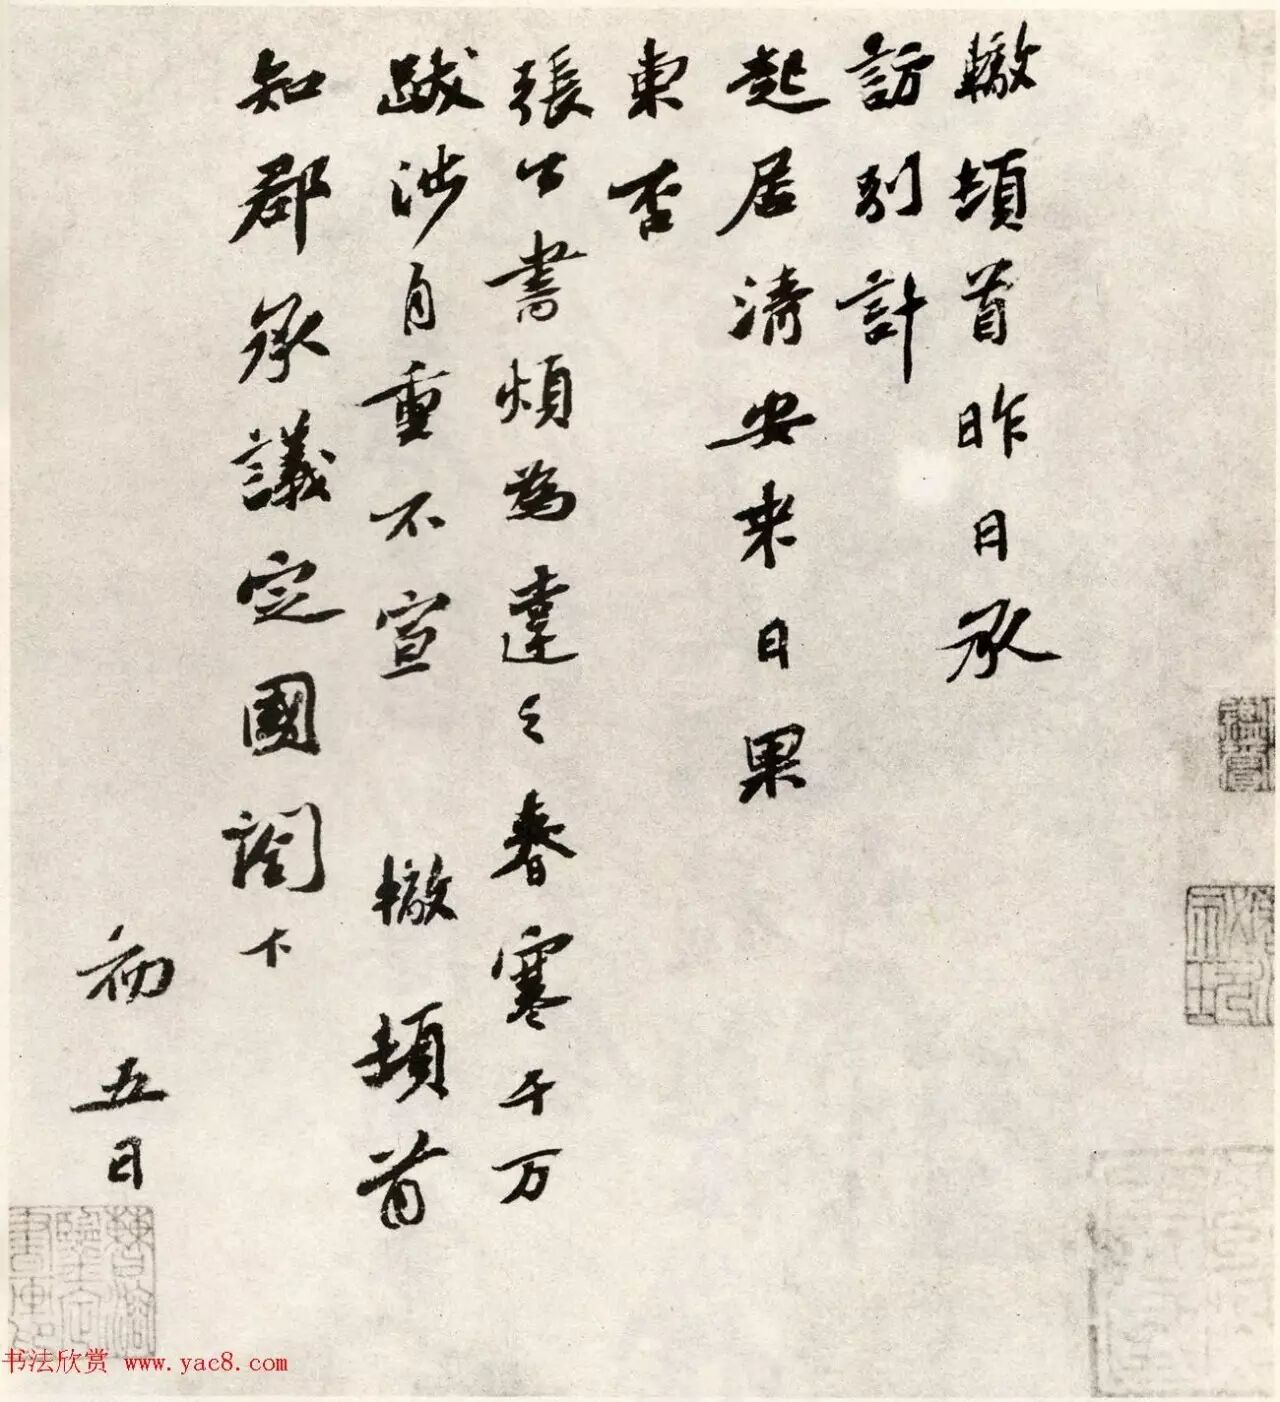 轍頓首昨日承
訪別計
起居清安来日果
東否
張公書煩為達之春寒千万
跋涉自重不宣 轍頓首
知郡承議定國閤下
初五日
书法欣赏 www.yac8.com